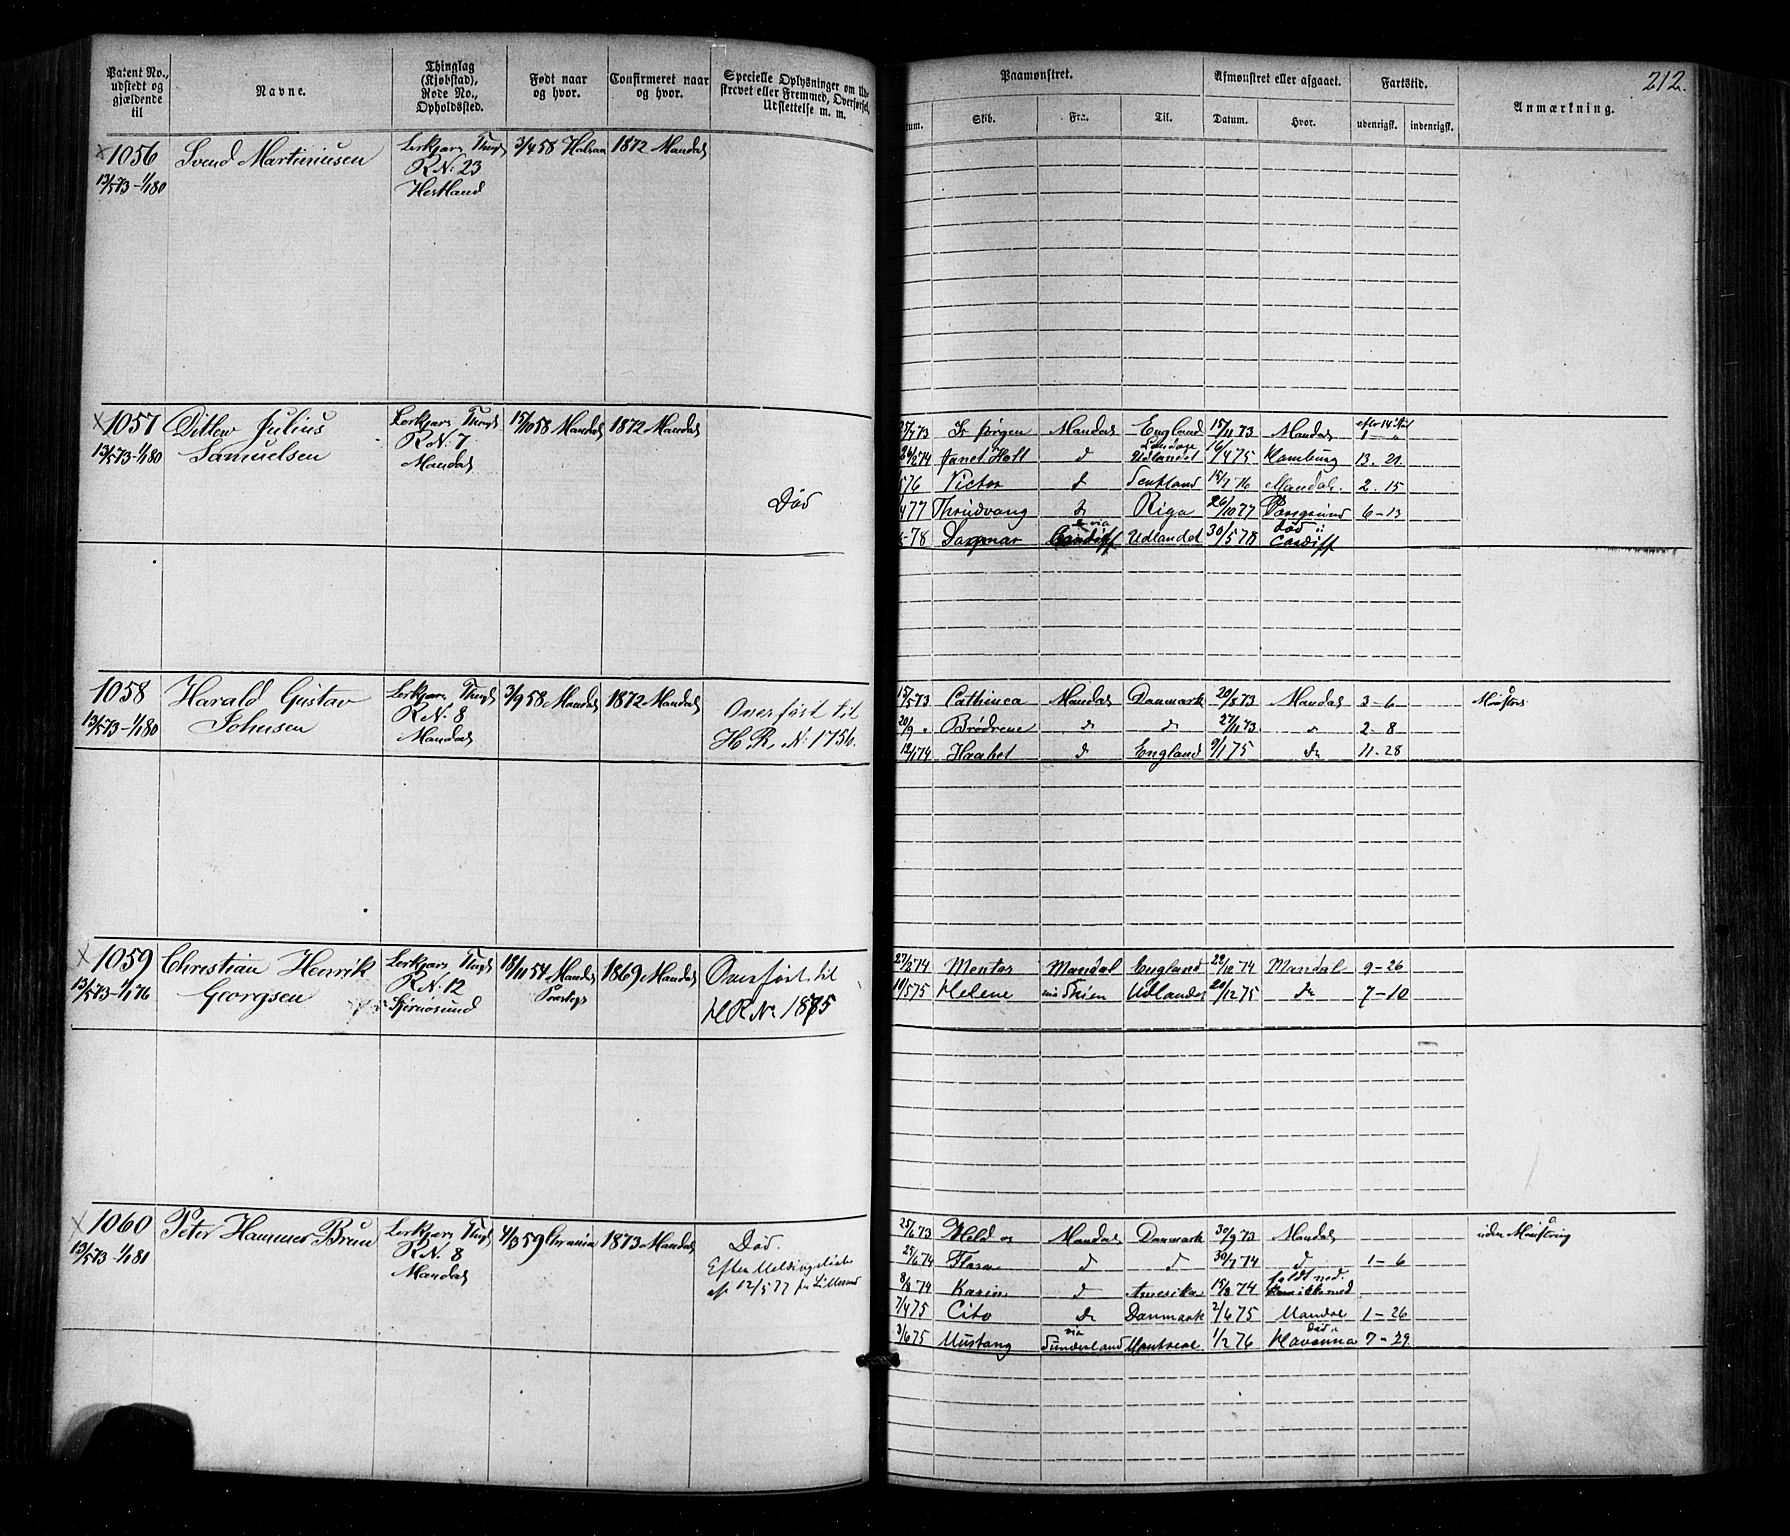 212.
Patent No., udstedt og gjældende til
Navne.
Thinglag (Kjøbstad), Rode No., Opholdssted.
Født naar og hvor.
Confirmeret naar og hvor.
Specielle Oplysninger om Ud-
strevet eller Fremmed, Overførsel,
Udslettelse m. m.
Paamønstret.
Afmønstret eller afgaaet.
Fartstid.
Anmærkning.
Skib. Fra. Til. Datum. Hvor. udenrigsk. indenrigsk.
1056 Svend Martiniusen 3/4 58 1872 Mandal
13/5 73-1/1 80 R N. 23
1057 Ditlew Julius 15/10 58 Mandal 1872 Mandal
13/5 73-1/1 80 Samuelsen R N. 7
Mandal
Død
Jørgen Mandal England 15/11 73 Mandal
74 Janet Udlandet 16/4 75 Hamburg 13. 21
76 Victor d 76 Mandal. 2. 15
77 Thrudvang d Riga 26/10 77 Porsgrund 6-13
78 Dagmar via Udlandet 30/5 78 død i Cardiff
1058 Harald Gustav 3/9 58 Mandal 1872 Mandal
13/5 73-1/1 80 Johnsen R N. 8
Mandal
Overført til
H. R. N. 1756.
15/5 73 Cathinca Mandal Danmark 20/8 73 Mandal 3-6
20/9 " Brødrene d d 27/11 73 d 2-8
12/1 74 Haabet d England 9/1 75 do 11-28
1059 Christian Henrik 18/11 54 Mandal 1869 Mandal
13/5 73-1/1 76 Georgsen R N. 12
Overført til
H R N 1875
27/2 74 Mentor Mandal England 22/12 74 Mandal 9-26
19/5 75 Helene via Udlandet 20/12 75 do 7-10
1060 Peter Hammer Brun 4/3 59 1873 Mandal
13/5 73-1/1 81 R N. 8
Mandal
Død.
12/5 77
25/6 73 Mandal Danmark 30/9 73 Mandal uden Mønstring
25/6 74 Flora d d 30/7 74 d 1-6
8/8 74 Karin d Amerika 74
7/4 75 Cito do Danmark 2/6 75 Mandal 1-26
3/6 75 Mustang via Sunderland Montreal 1/2 76 død i Havanna 7-29